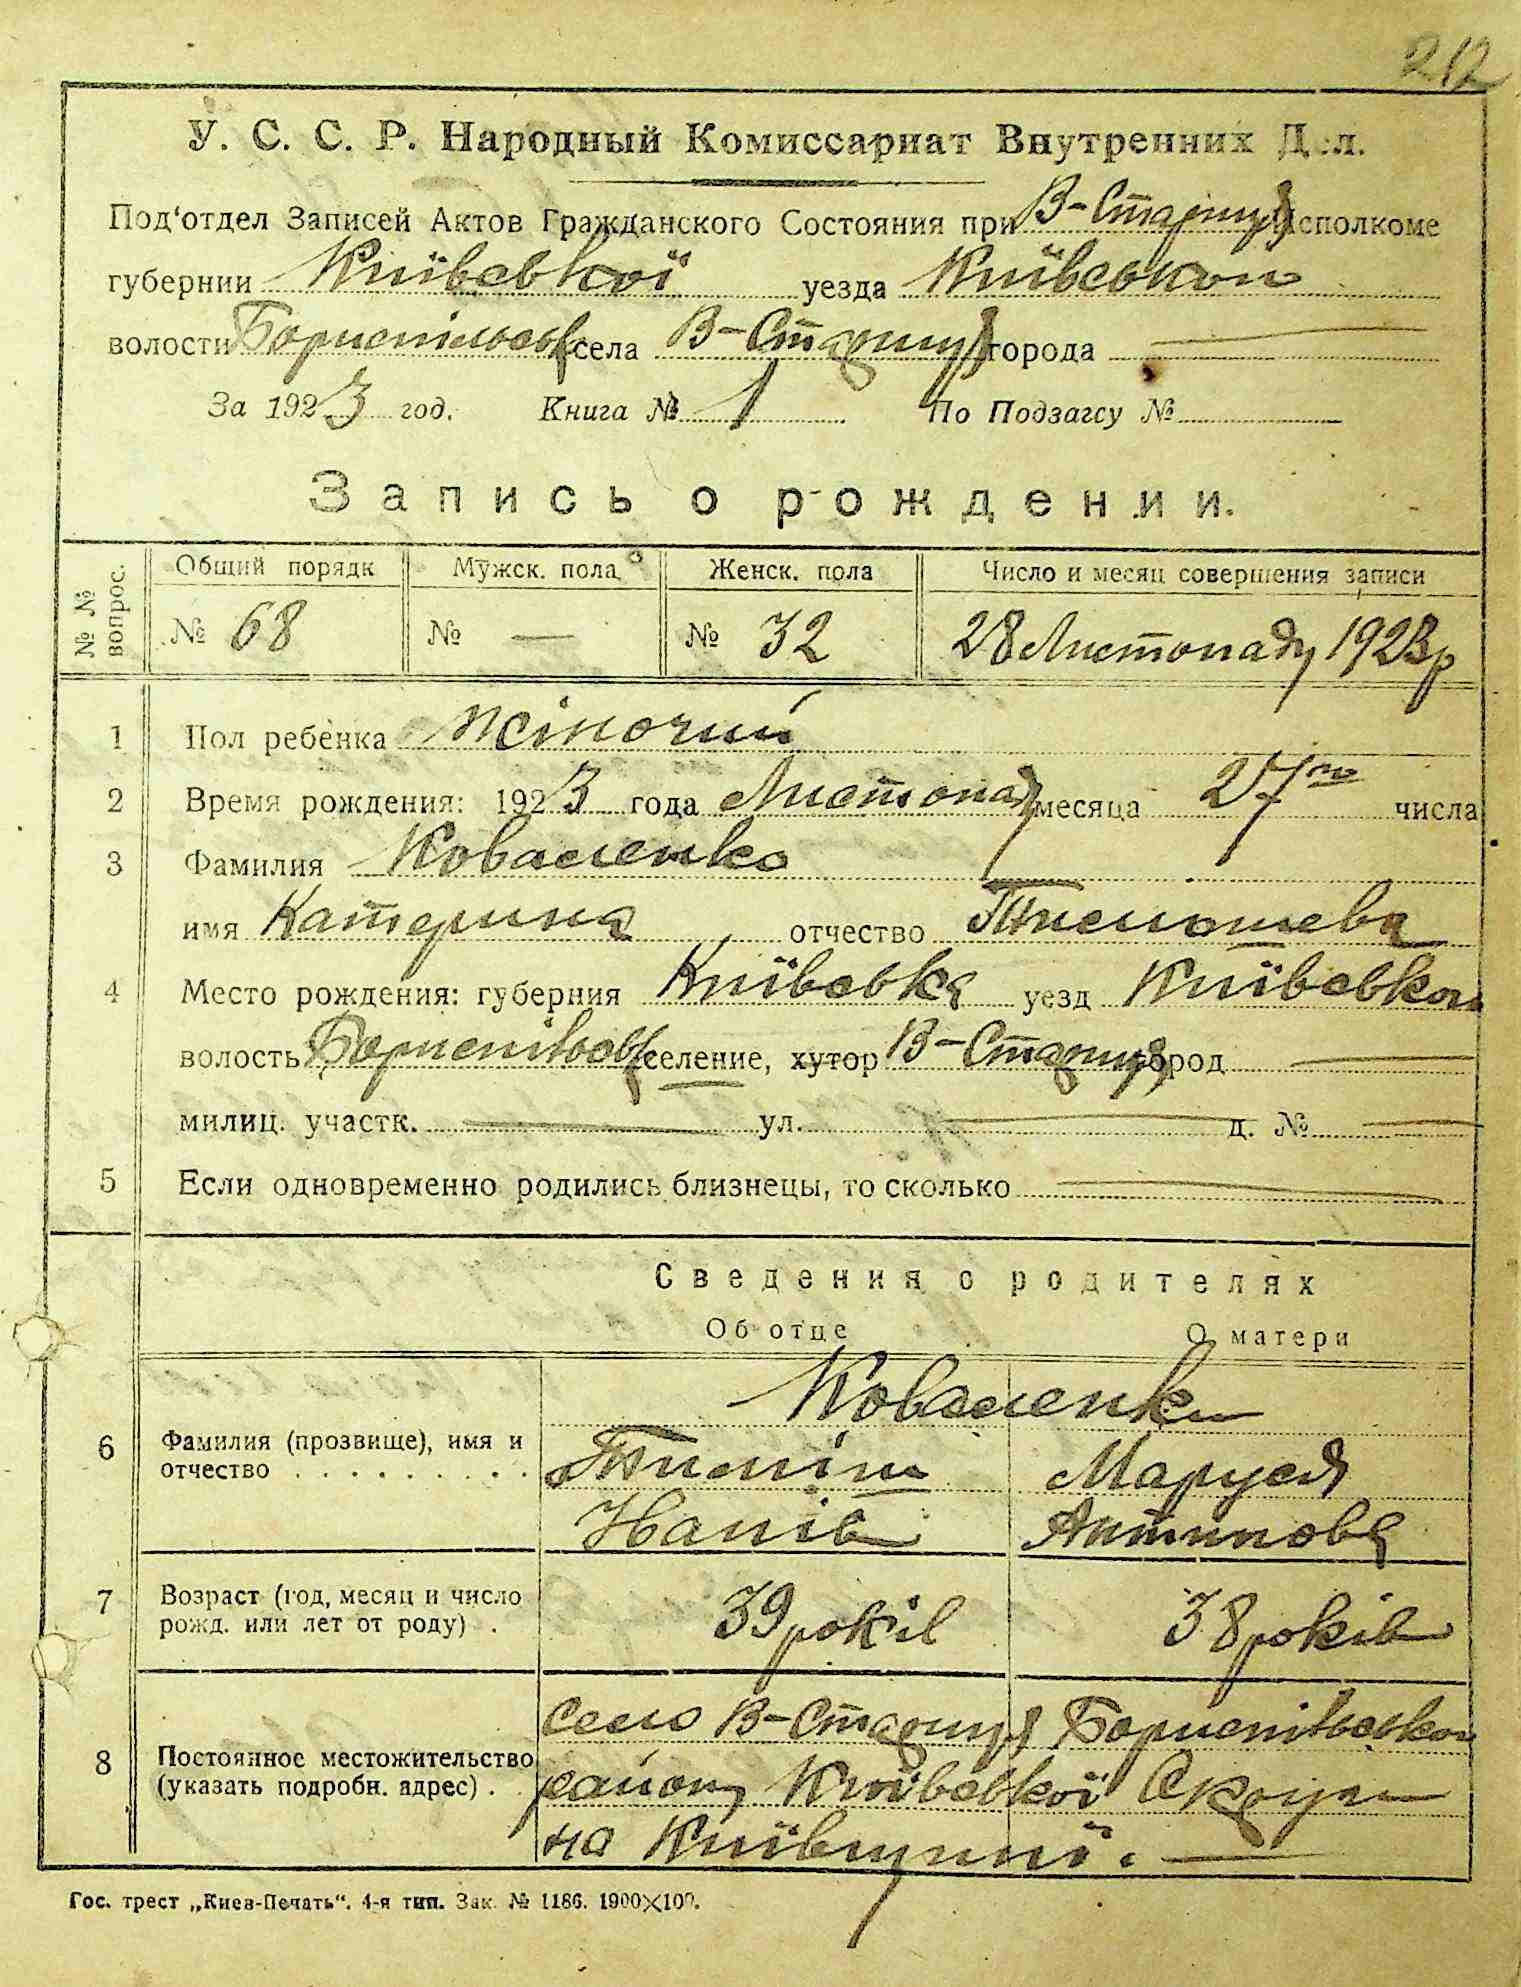 212
У. С. С. Р. Народный Комиссариат Внутренних Дел.
Под'отдел Записей Актов Гражданского Состояния при В-Стариц. Исполкоме
губернии Київської уезда Київської
волости Бориспільськ. села В-Стариця города —
За 1923 год. Книга № 1 По Подзагсу №
Запись о рождении.
№ № вопрос. Общий порядк Мужск. пола Женск. пола Число и месяц совершения записи
№ 68 № — № 32 28 Листопаду 1923 р
1 Пол ребенка жіночий
2 Время рождения: 1923 года Листопаду месяца 27го числа
3 Фамилия Коваленко
имя Катерина отчество Тимошева
4 Место рождения: губерния Київська уезд Київської
волость Бориспільськ. селение, хутор В-Стариця город —
милиц. участк. — ул. — д. № —
5 Если одновременно родились близнецы, то сколько —
Сведения о родителях
Об отце О матери
Коваленки
6 Фамилия (прозвище), имя и отчество . . . . . . . . . Тиміш Маруся
Напів Антипова
7 Возраст (год, месяц и число рожд. или лет от роду) . 39 років 38 років
8 Постоянное местожительство (указать подробн. адрес) . . село В-Стариця Бориспільського
району Київської Округи
на Київщині. —
Гос. трест „Киев-Печать“. 4-я тип. Зак. № 1186. 1900×100.